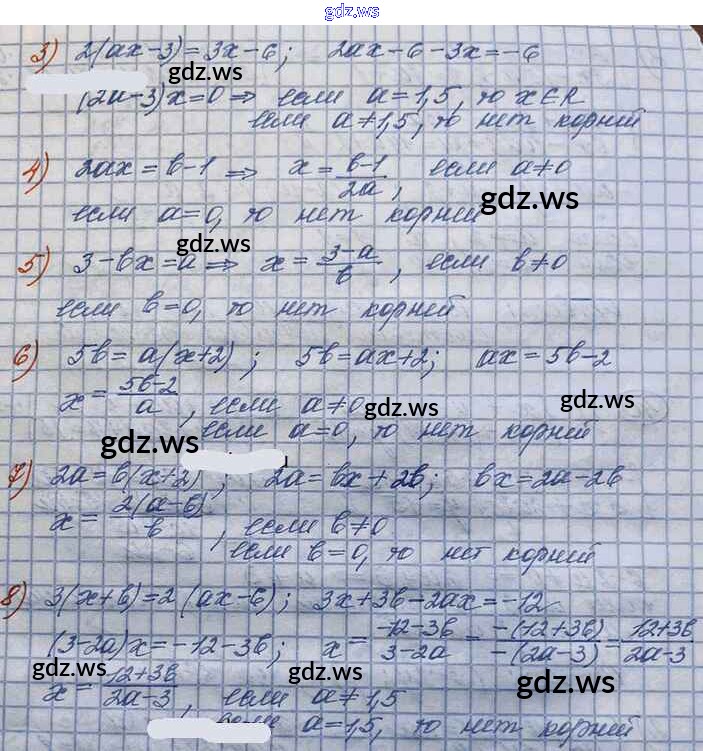 gdz.ws
3) 2(ax-3)=3x-6; 2ax-6-3x=-6
gdz.ws
(2a-3)x=0 ⇒ если a=1,5, то x∈R
если a≠1,5, то нет корней
4) 2ax=b-1 ⇒ x=\frac{b-1}{2a}, если a≠0
gdz.ws
если a=0, то нет корней
gdz.ws
5) 3-bx=a ⇒ x=\frac{3-a}{b}, если b≠0
если b=0, то нет корней
6) 5b=a(x+2); 5b=ax+2; ax=5b-2
x=\frac{5b-2}{a}, если a≠0
gdz.ws gdz.ws
если a=0, то нет корней
gdz.ws
7) 2a=b(x+2); 2a=bx+2b; bx=2a-2b
x=\frac{2(a-b)}{b}, если b≠0
если b=0, то нет корней
8) 3(x+b)=2(ax-6); 3x+3b-2ax=-12
(3-2a)x=-12-3b; x=\frac{-12-3b}{3-2a}=\frac{-(12+3b)}{-(2a-3)}=\frac{12+3b}{2a-3}
gdz.ws gdz.ws gdz.ws
x=\frac{12+3b}{2a-3}, если a≠1,5
если a=1,5, то нет корней